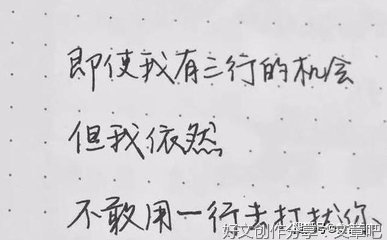 即使我有三行的机会
但我依然
不敢用一行去打扰你、
好文创作分享：文章吧